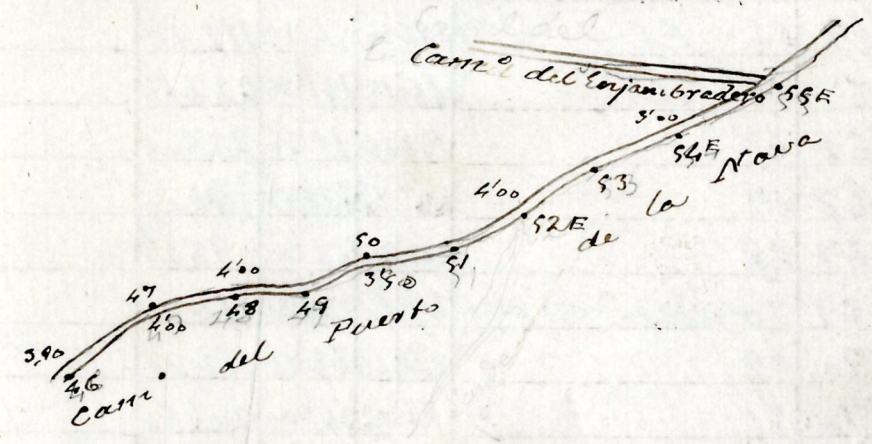 Camº del Enjambradero
55E
3'00
54E
53
4'00
52E
50
51
3'50
4'00
47
48
49
4'00
46
Camº del Puerto de la Nava